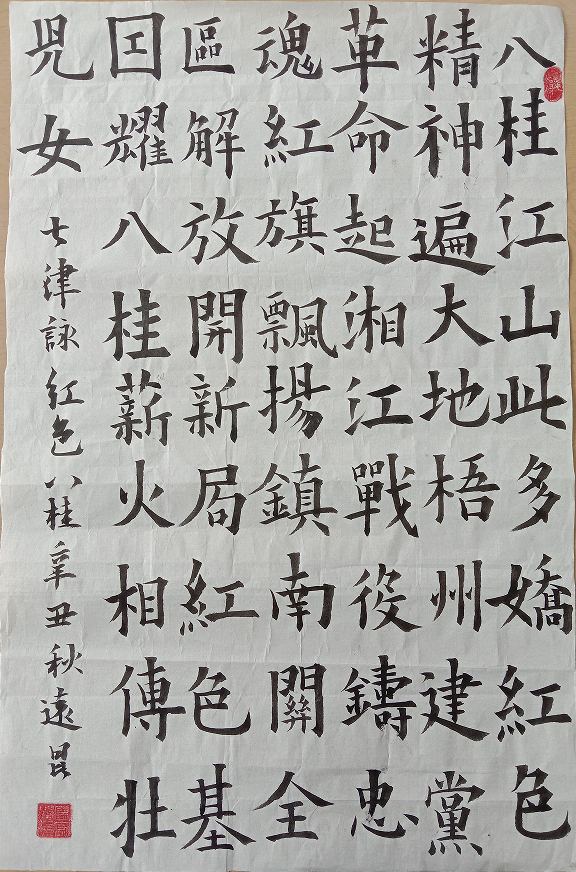 八桂江山此多嬌紅色
精神遍大地梧州建黨
革命起湘江戰役鑄忠
魂紅旗飄揚鎮南關全
區解放開新局紅色基
囙耀八桂薪火相傳壯
兒女
七律詠紅色八桂辛丑秋遠昆